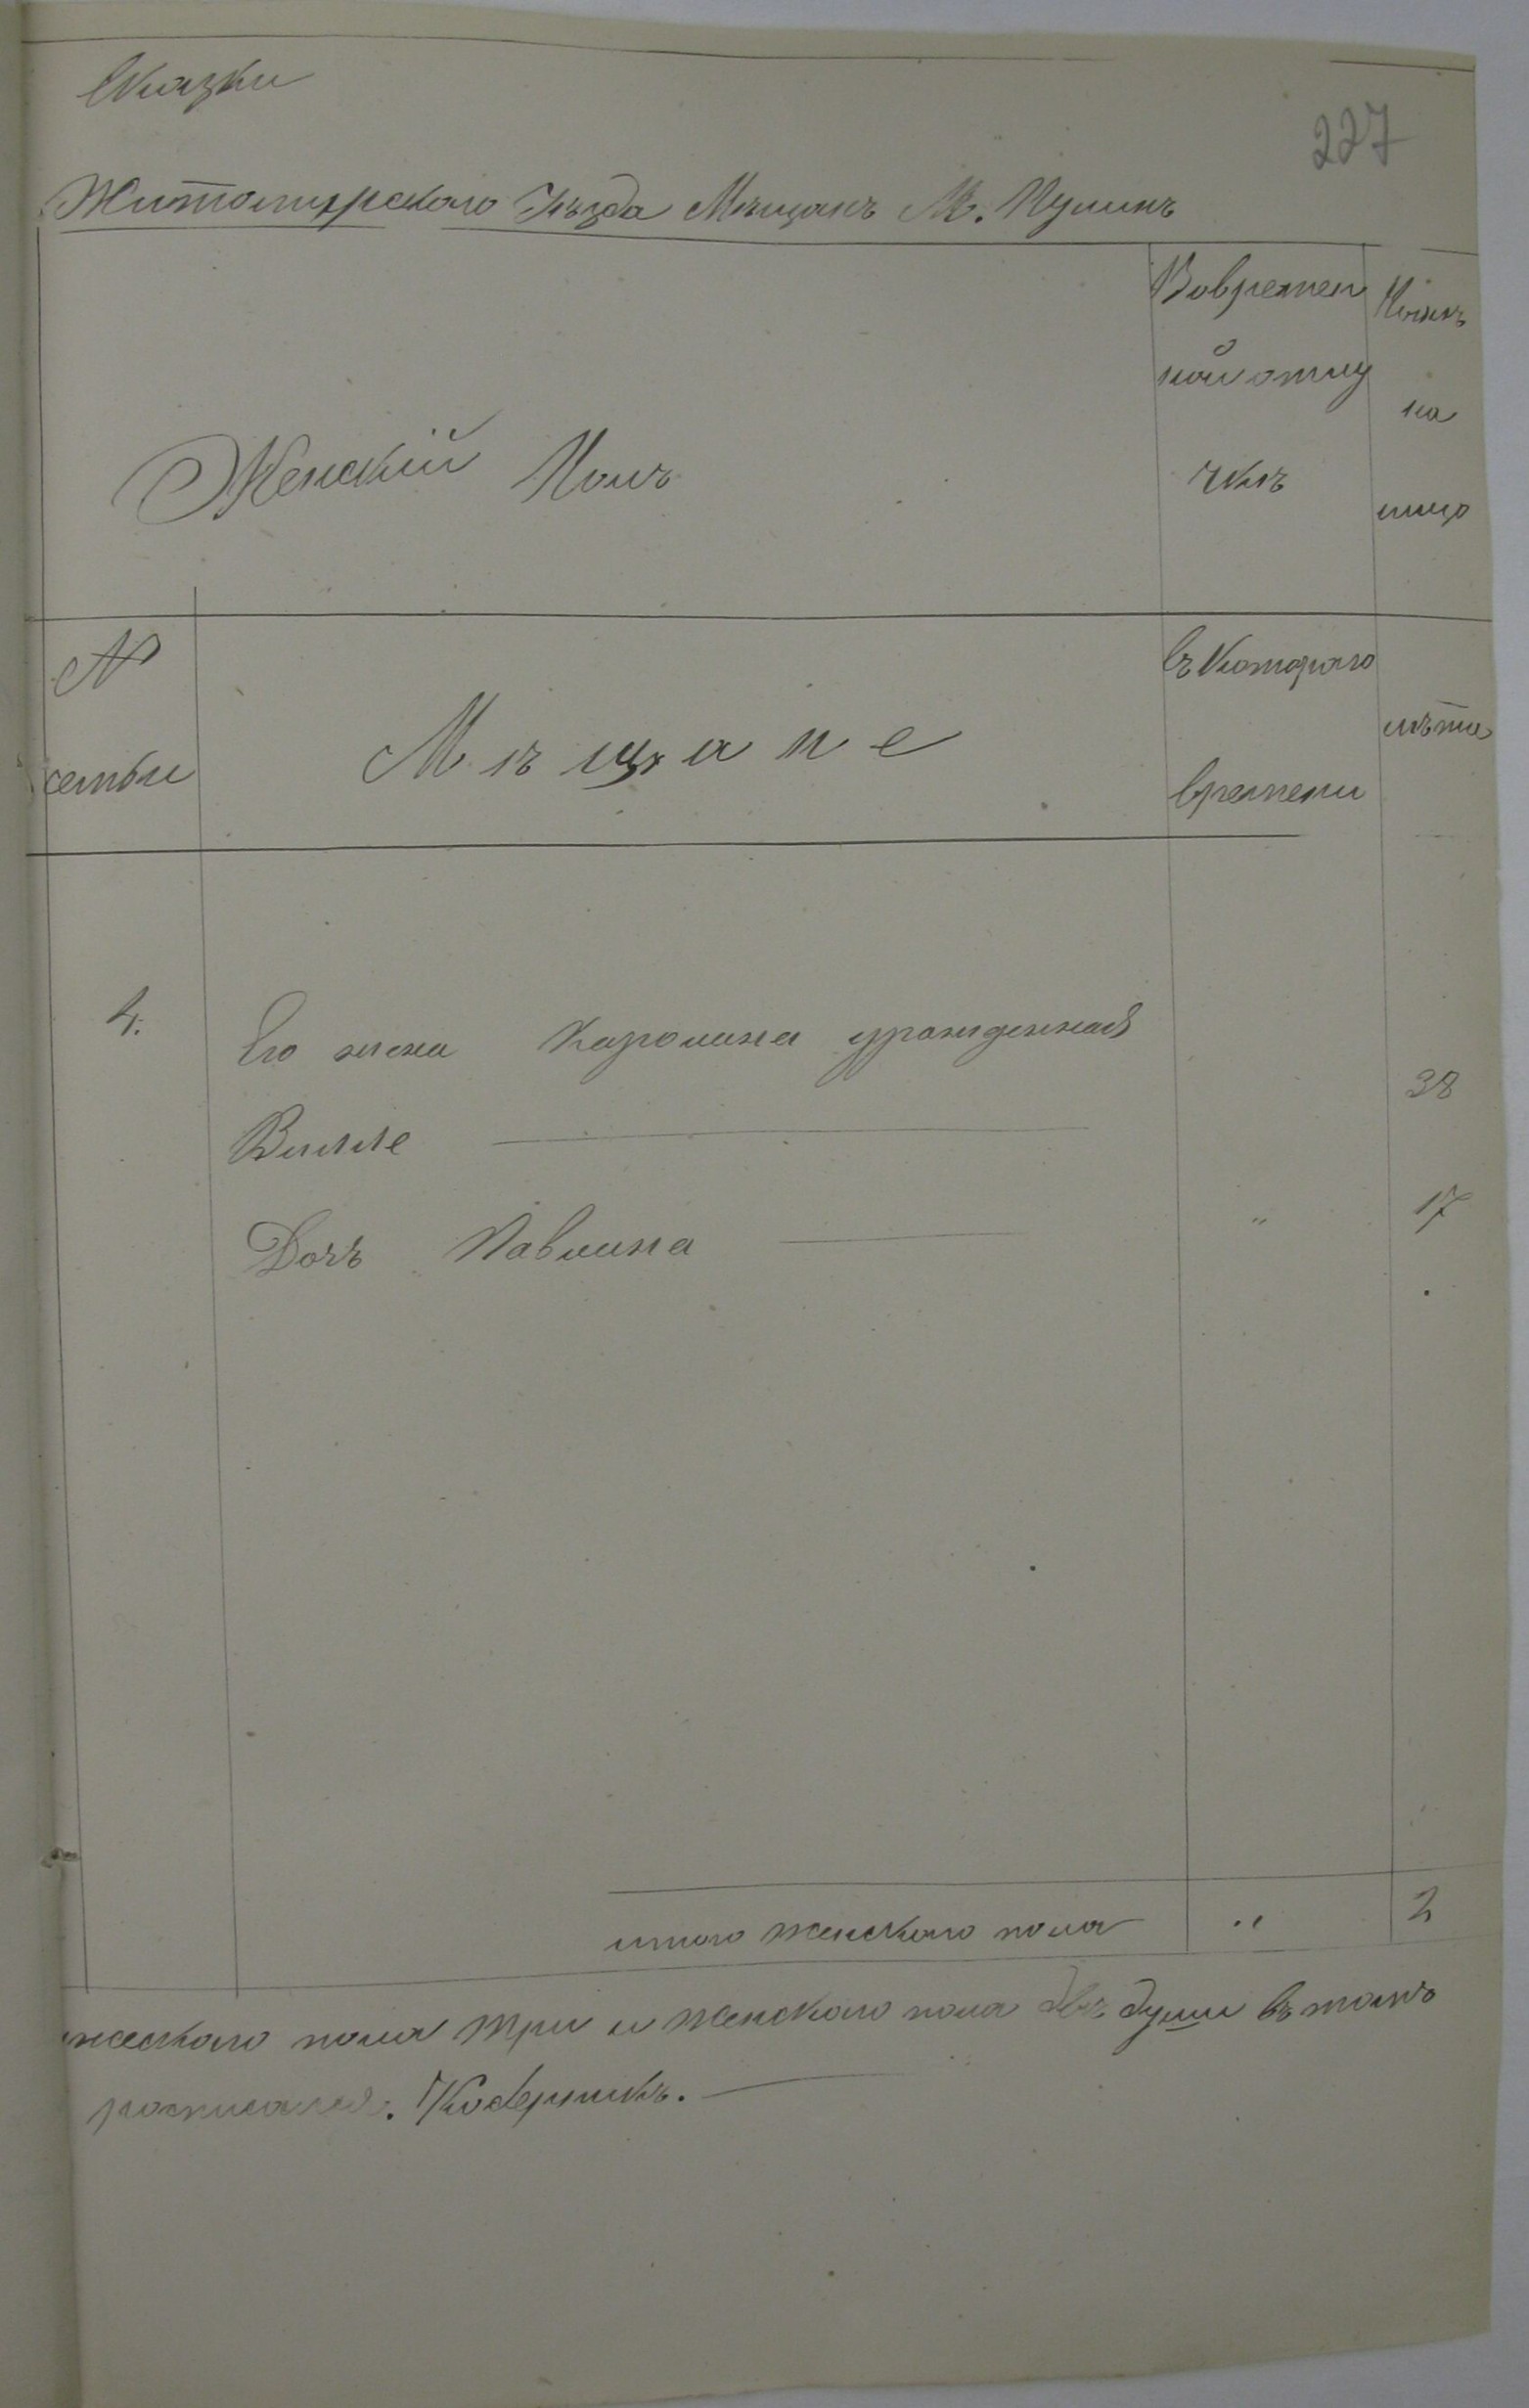 Сказки
227
Житомирскаго Уѣзда Мѣщанъ М. Пулинъ
Женскій Полъ
Вовремен
ной отлу
чкѣ
Нынѣ
на
лицо
№
семьи
Мѣщане
съ Котораго
времени
лѣта
4.
Его жена Каролина урожденная
Вилле
38
Дочь Павлина
"
17
итого женскаго пола
"
2
жескаго пола три и женскаго пола двѣ души въ томъ
росписался.